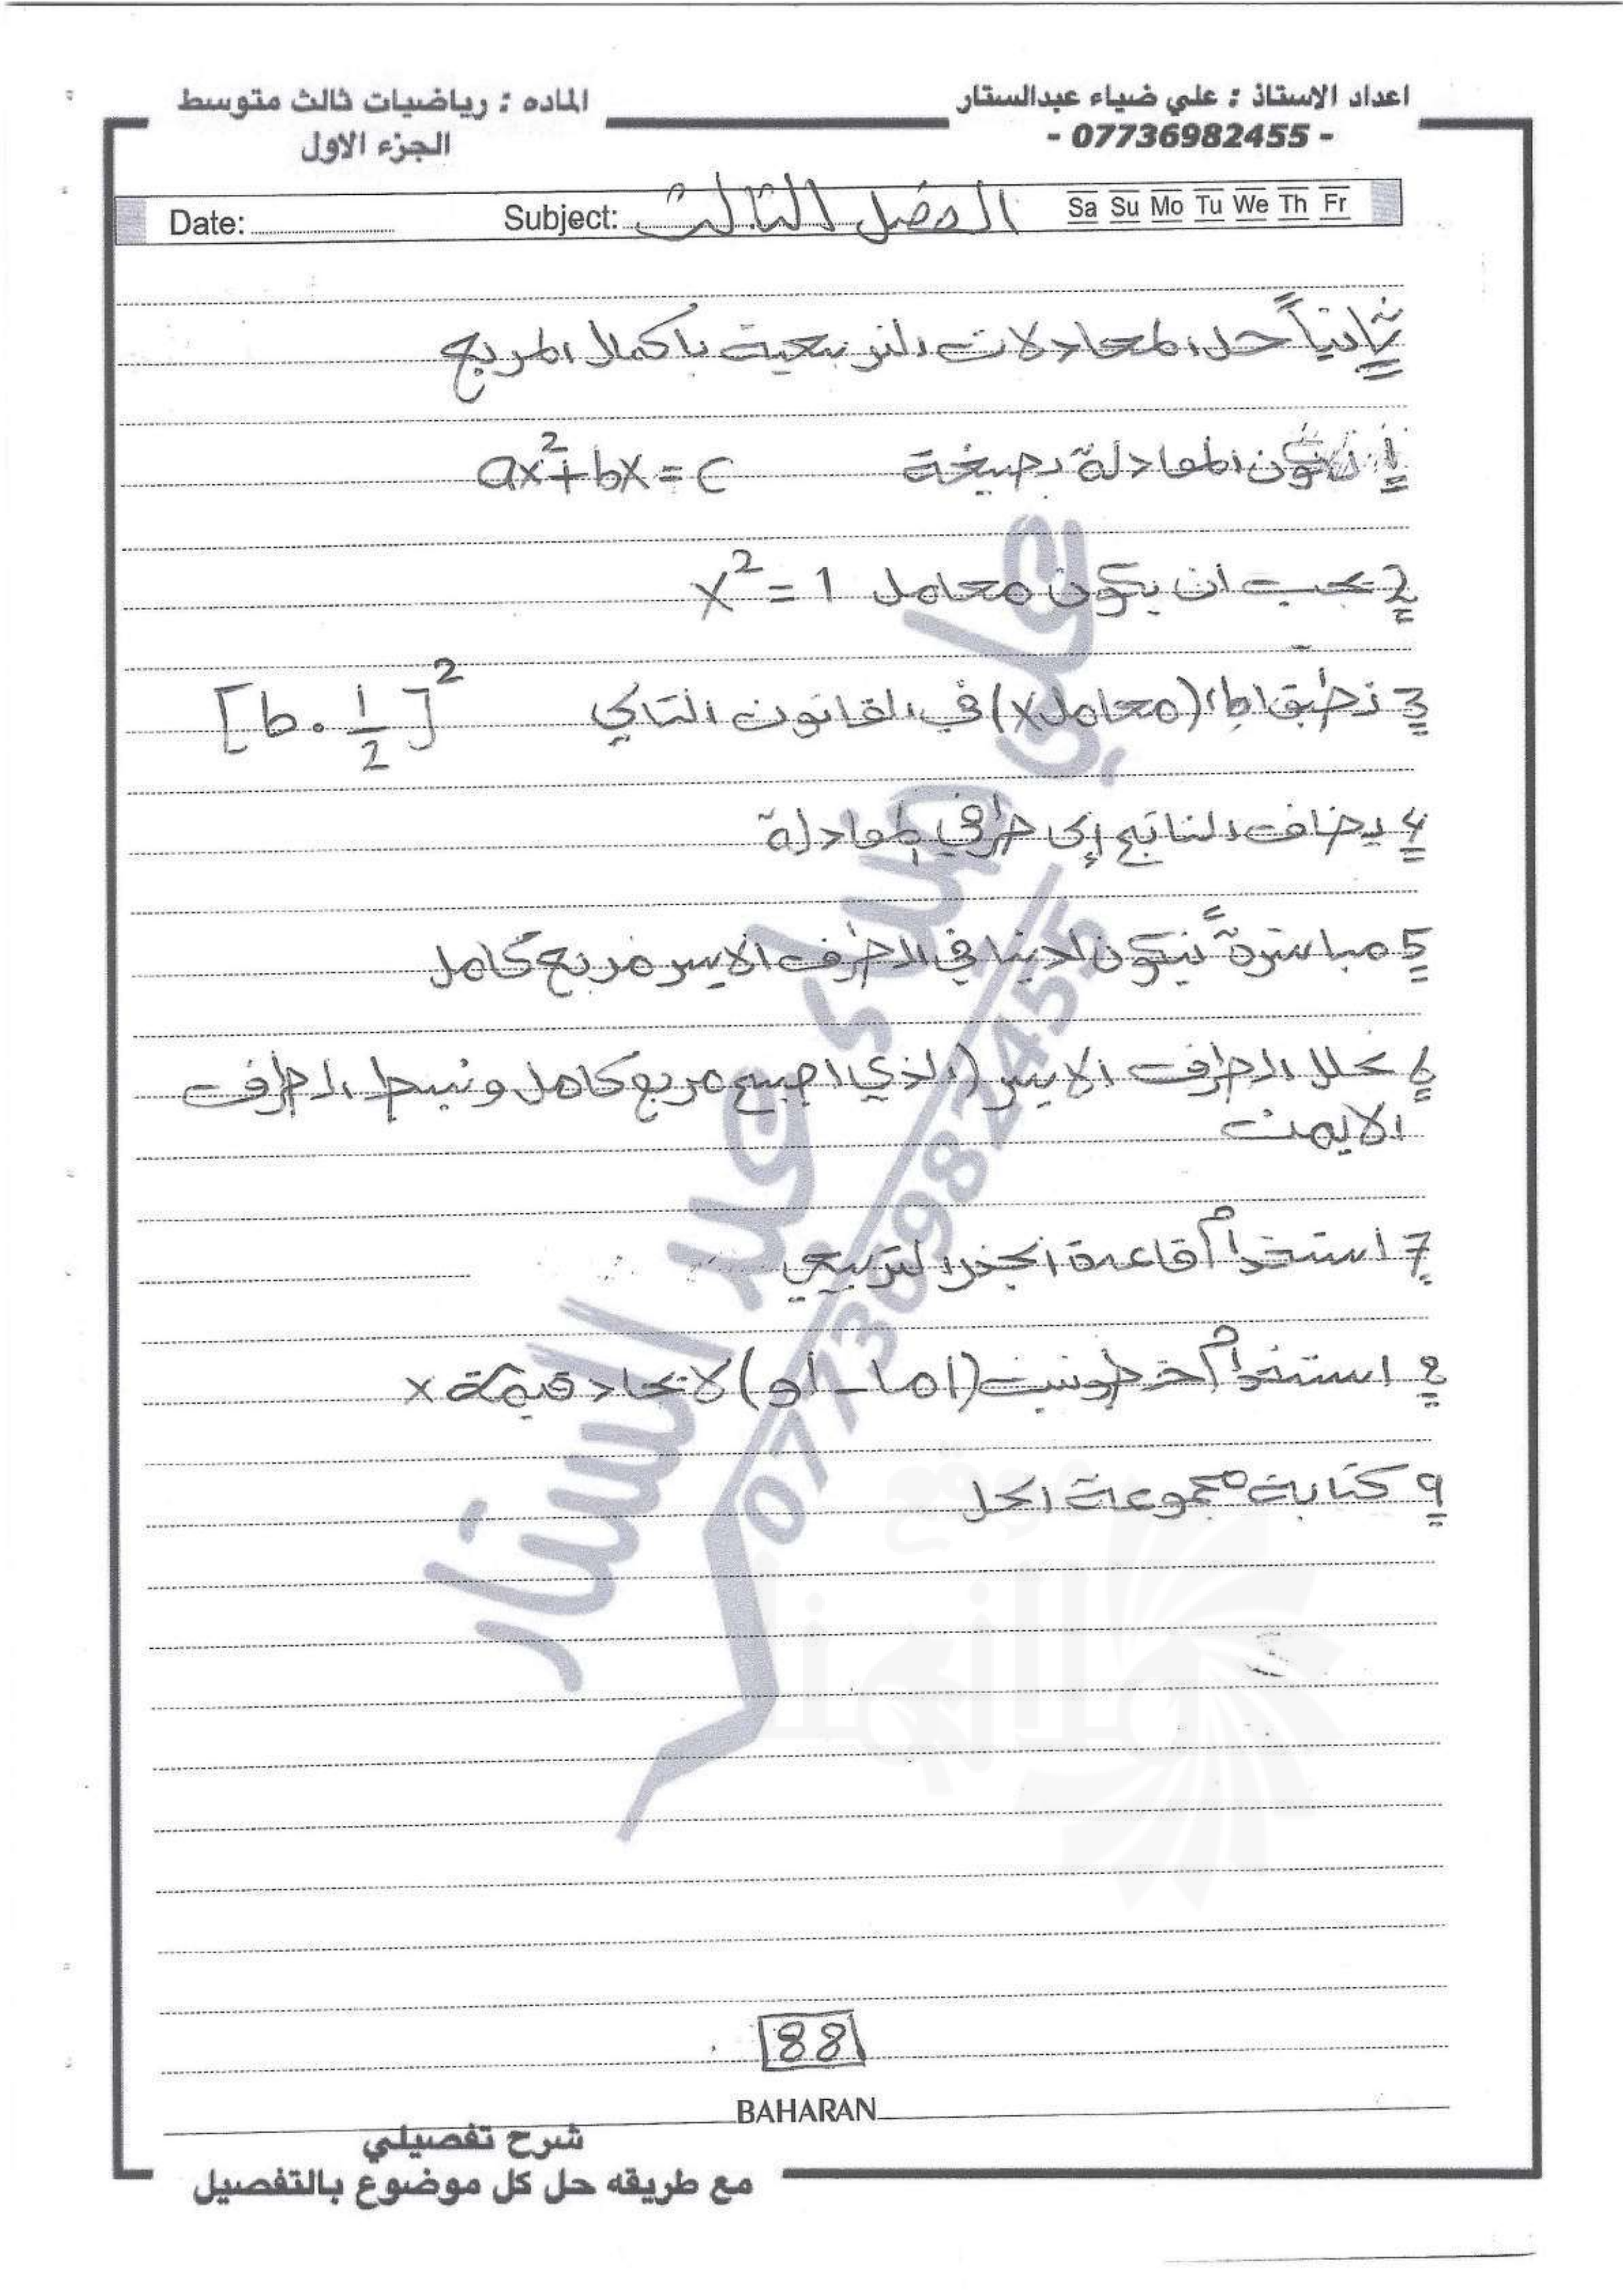 اعداد الاستاذ : علي ضياء عبدالستار
- 07736982455 -
الماده : رياضيات ثالث متوسط
الجزء الاول
Date: Subject: الفصل الثالث Sa Su Mo Tu We Th Fr
ثانياً حل المعادلات التربيعية باكمال المربع
1 تكون المعادلة بصيغة ax²+bx=c
2 يجب ان يكون معامل x²=1
3 نطبق (معامل x) في القانون التالي [b.1/2]²
4 يضاف الناتج إلى طرفي المعادلة
5 مباشرةً يتكون لدينا في الطرف الايسر مربع كامل
6 نحلل الطرف الايسر (الذي اصبح مربع كامل ونبسط الطرف
الايمن
7 استخدام قاعدة الجذر التربيعي
8 استخدام خطوتين (اما - او) لايجاد قيمة x
9 كتابة مجموعة الحل
علي ضياء عبد الستار
07736982455
88
BAHARAN
شرح تفصيلي
مع طريقه حل كل موضوع بالتفصيل